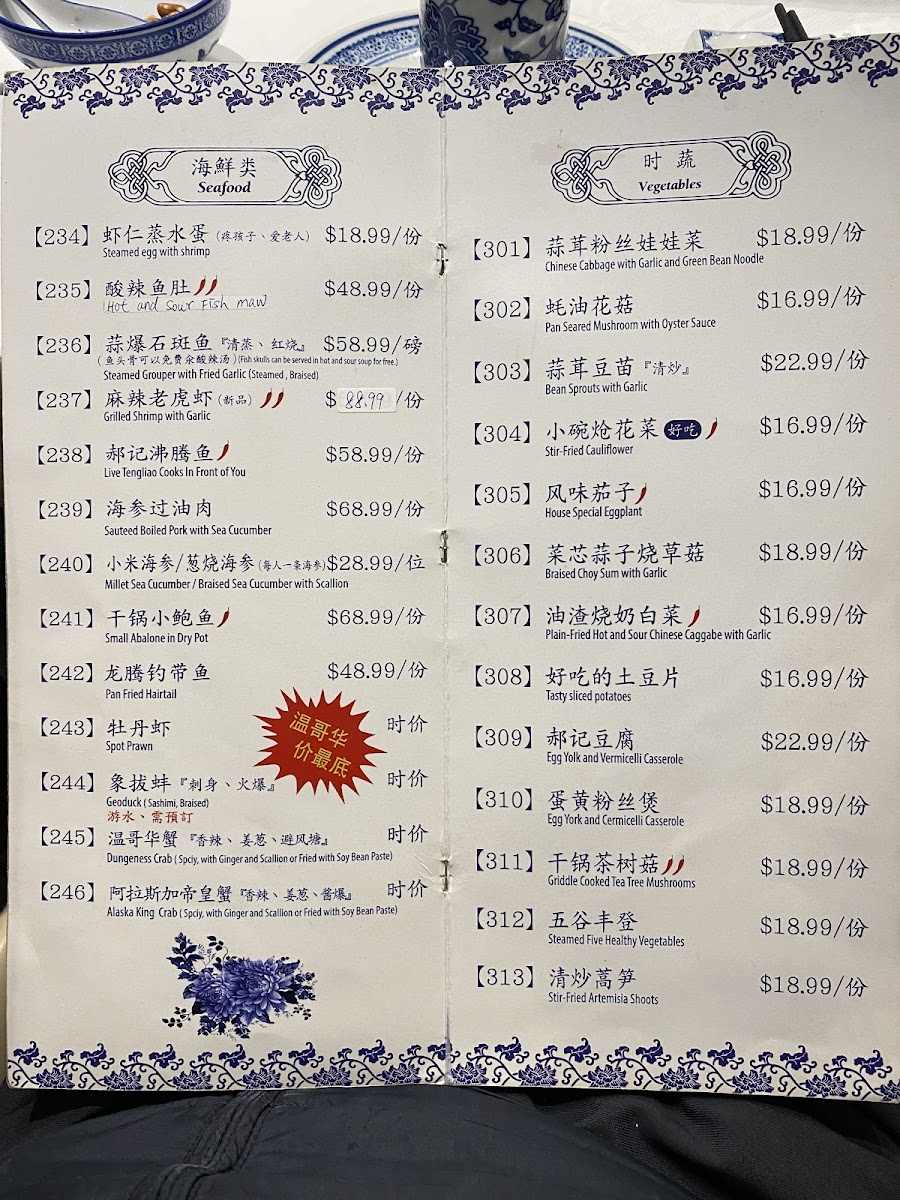 海鲜类
Seafood
【234】虾仁蒸水蛋(疼孩子、爱老人) $18.99/份
Steamed egg with shrimp
【235】酸辣鱼肚 $48.99/份
Hot and Sour Fish maw
【236】蒜爆石斑鱼『清蒸、红烧』 $58.99/磅
(鱼头骨可以免费汆酸辣汤)(Fish skulls can be served in hot and sour soup for free.)
Steamed Grouper with Fried Garlic (Steamed , Braised)
【237】麻辣老虎虾(新品) $88.99/份
Grilled Shrimp with Garlic
【238】郝记沸腾鱼 $58.99/份
Live Tengliao Cooks In Front of You
【239】海参过油肉 $68.99/份
Sauteed Boiled Pork with Sea Cucumber
【240】小米海参/葱烧海参(每人一条海参)$28.99/位
Millet Sea Cucumber / Braised Sea Cucumber with Scallion
【241】干锅小鲍鱼 $68.99/份
Small Abalone in Dry Pot
【242】龙腾钓带鱼 $48.99/份
Pan Fried Hairtail
【243】牡丹虾 时价
Spot Prawn
温哥华
价最底
【244】象拔蚌『刺身、火爆』 时价
Geoduck ( Sashimi, Braised)
游水、需預訂
【245】温哥华蟹『香辣、姜葱、避风塘』 时价
Dungeness Crab ( Spciy, with Ginger and Scallion or Fried with Soy Bean Paste)
【246】阿拉斯加帝皇蟹『香辣、姜葱、酱爆』 时价
Alaska King Crab ( Spciy, with Ginger and Scallion or Fried with Soy Bean Paste)
时蔬
Vegetables
【301】蒜茸粉丝娃娃菜 $18.99/份
Chinese Cabbage with Garlic and Green Bean Noodle
【302】蚝油花菇 $16.99/份
Pan Seared Mushroom with Oyster Sauce
【303】蒜茸豆苗『清炒』 $22.99/份
Bean Sprouts with Garlic
【304】小碗炝花菜 好吃 $16.99/份
Stir-Fried Cauliflower
【305】风味茄子 $16.99/份
House Special Eggplant
【306】菜芯蒜子烧草菇 $18.99/份
Braised Choy Sum with Garlic
【307】油渣烧奶白菜 $16.99/份
Plain-Fried Hot and Sour Chinese Caggabe with Garlic
【308】好吃的土豆片 $16.99/份
Tasty sliced potatoes
【309】郝记豆腐 $22.99/份
Egg Yolk and Vermicelli Casserole
【310】蛋黄粉丝煲 $18.99/份
Egg York and Cermicelli Casserole
【311】干锅茶树菇 $18.99/份
Griddle Cooked Tea Tree Mushrooms
【312】五谷丰登 $18.99/份
Steamed Five Healthy Vegetables
【313】清炒蒿笋 $18.99/份
Stir-Fried Artemisia Shoots